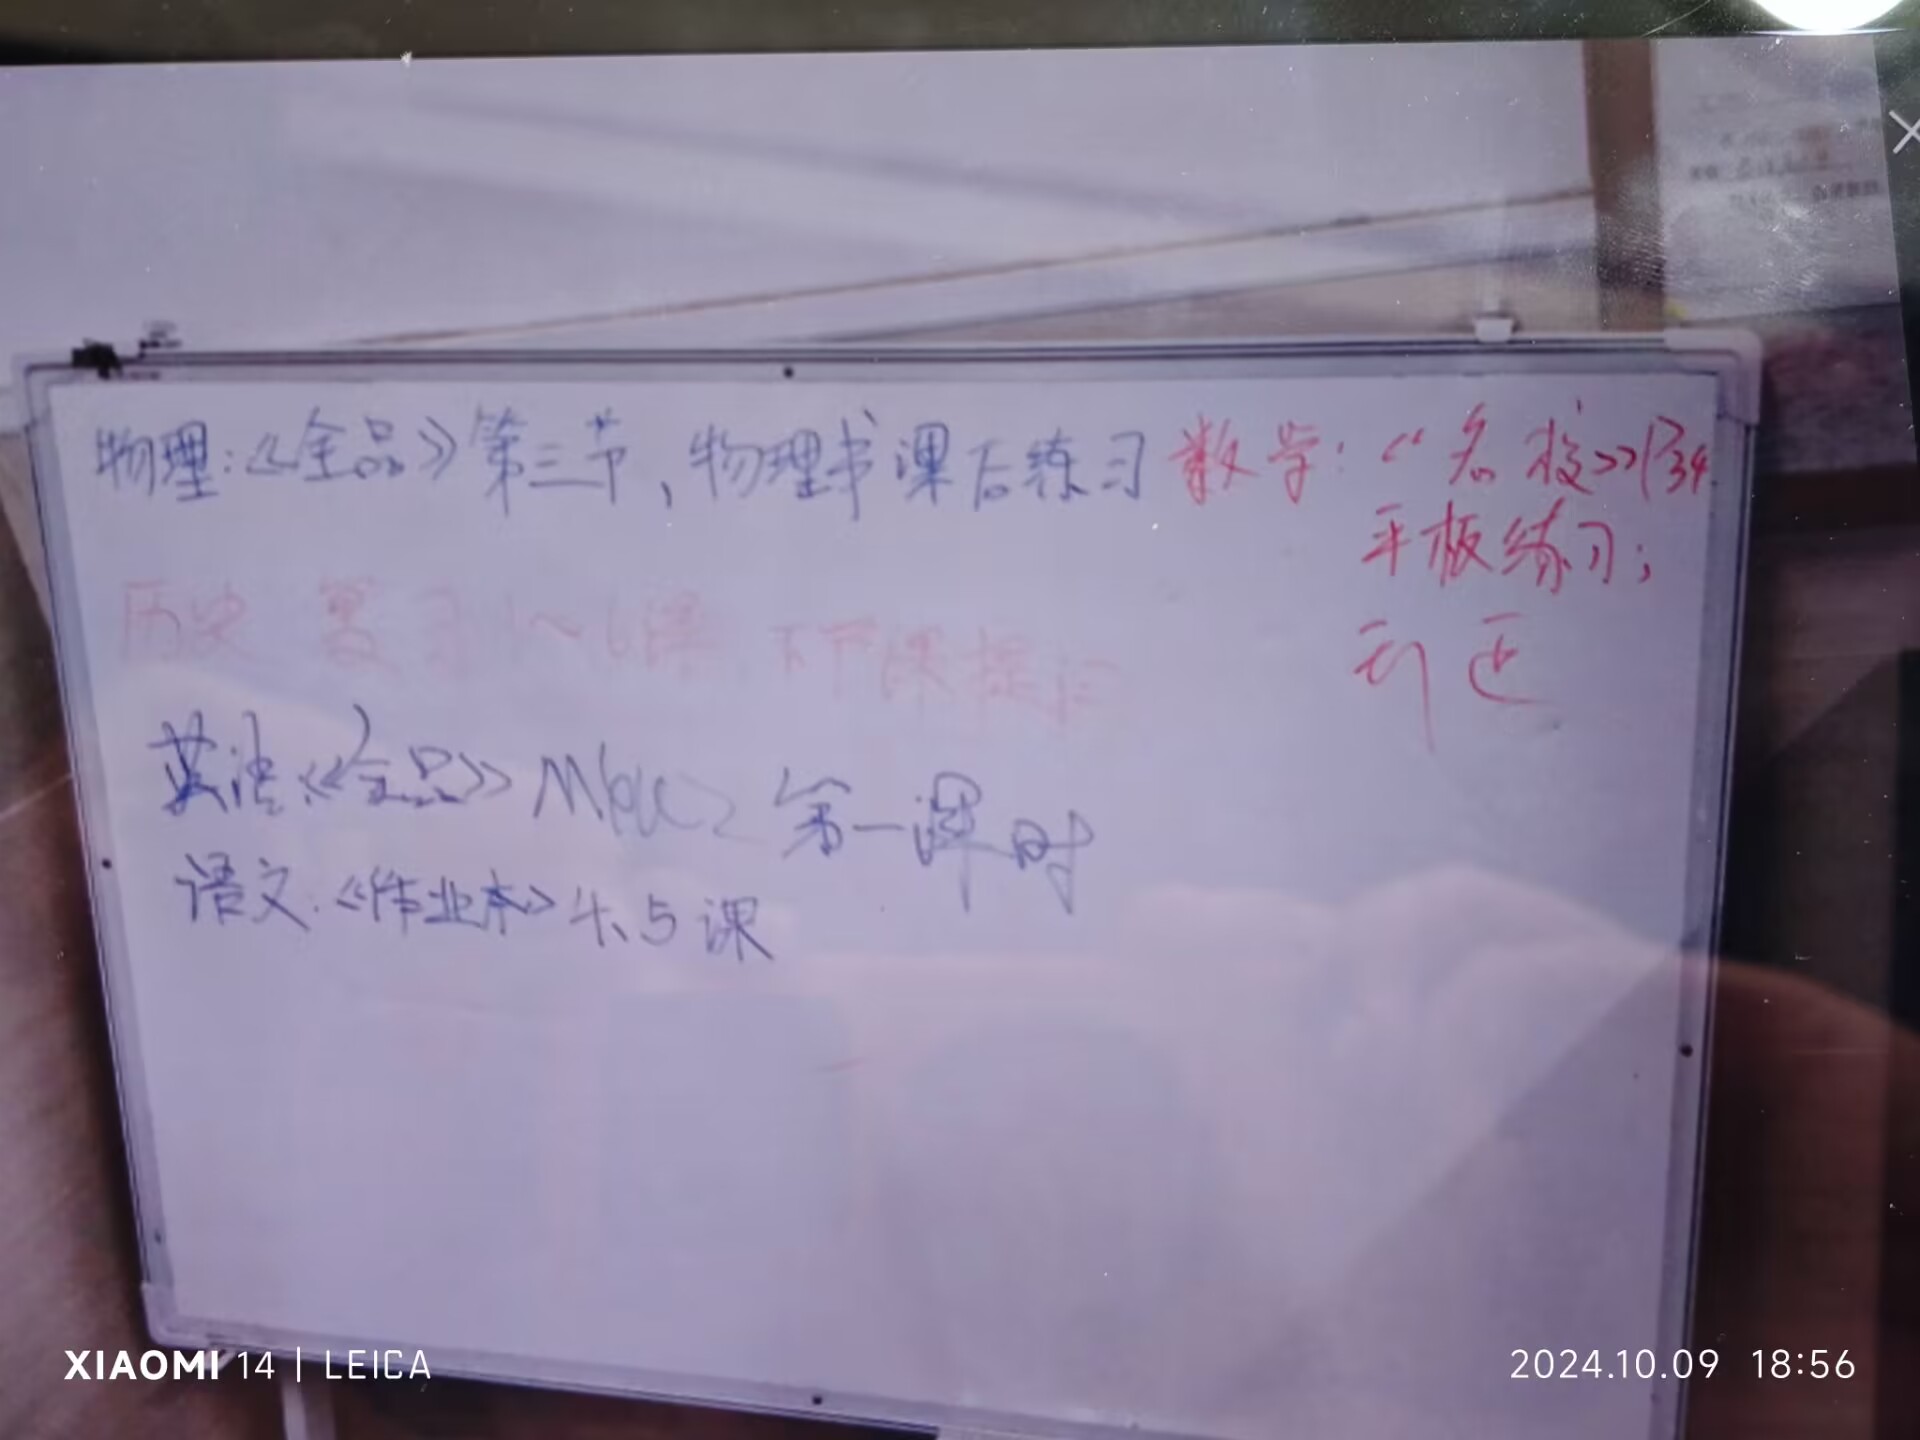 物理:《全品》第三节,物理书课后练习
数学:《名校》P34
平板练习;
订正
历史 复习1~6课,下节课提问
英语:《全品》M6U2 第一课时
语文:《作业本》4、5课
XIAOMI 14 | LEICA
2024.10.09 18:56